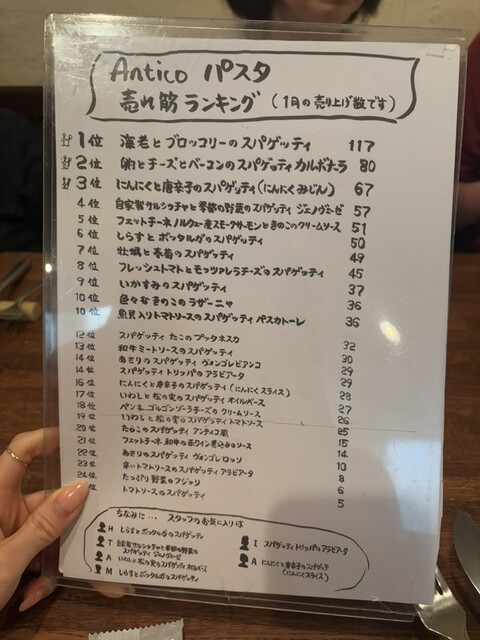 Antico パスタ
売れ筋ランキング (1月の売り上げ数です)
1位 海老とブロッコリーのスパゲッティ 117
2位 卵とチーズとベーコンのスパゲッティカルボナーラ 80
3位 にんにくと唐辛子のスパゲッティ(にんにくみじん) 67
4位 自家製サルシッチャと季節の野菜のスパゲッティ ジェノヴェーゼ 57
5位 フェットチーネノルウェー産スモークサーモンときのこのクリームソース 51
6位 しらすとボッタルガのスパゲッティ 50
7位 牡蠣と春菊のスパゲッティ 49
8位 フレッシュトマトとモッツァレラチーズのスパゲッティ 45
9位 いかすみのスパゲッティ 37
10位 色々なきのこのラザーニャ 36
10位 魚貝入りトマトソースのスパゲッティ ペスカトーレ 36
12位 スパゲッティ たこのプッタネスカ 32
13位 和牛ミートソースのスパゲッティ 30
14位 あさりのスパゲッティ ヴォンゴレビアンコ 29
14位 スパゲッティ トリッパのアラビアータ 29
16位 にんにくと唐辛子のスパゲッティ(にんにくスライス) 28
17位 いわしと松の実のスパゲッティ オイルベース 27
18位 ペンネ ゴルゴンゾーラチーズのクリームソース 26
19位 いわしと松の実のスパゲッティ トマトソース 25
20位 たらこのスパゲッティ アンティコ風 15
21位 フェットチーネ 和牛の赤ワイン煮込みのソース 14
22位 あさりのスパゲッティ ヴォンゴレロッソ 10
23位 辛いトマトソースのスパゲッティ アラビアータ 8
24位 たっぷり野菜のフジッリ 6
位 トマトソースのスパゲッティ 5
ちなみに… スタッフのお気に入りは
H しらすとボッタルガのスパゲッティ
T 自家製サルシッチャと季節の野菜の
スパゲッティ ジェノヴェーゼ
A いわしと松の実のスパゲッティ オイルベース
M しらすとボッタルガのスパゲッティ
I スパゲッティトリッパのアラビアータ
A にんにくと唐辛子のスパゲッティ
(にんにくスライス)